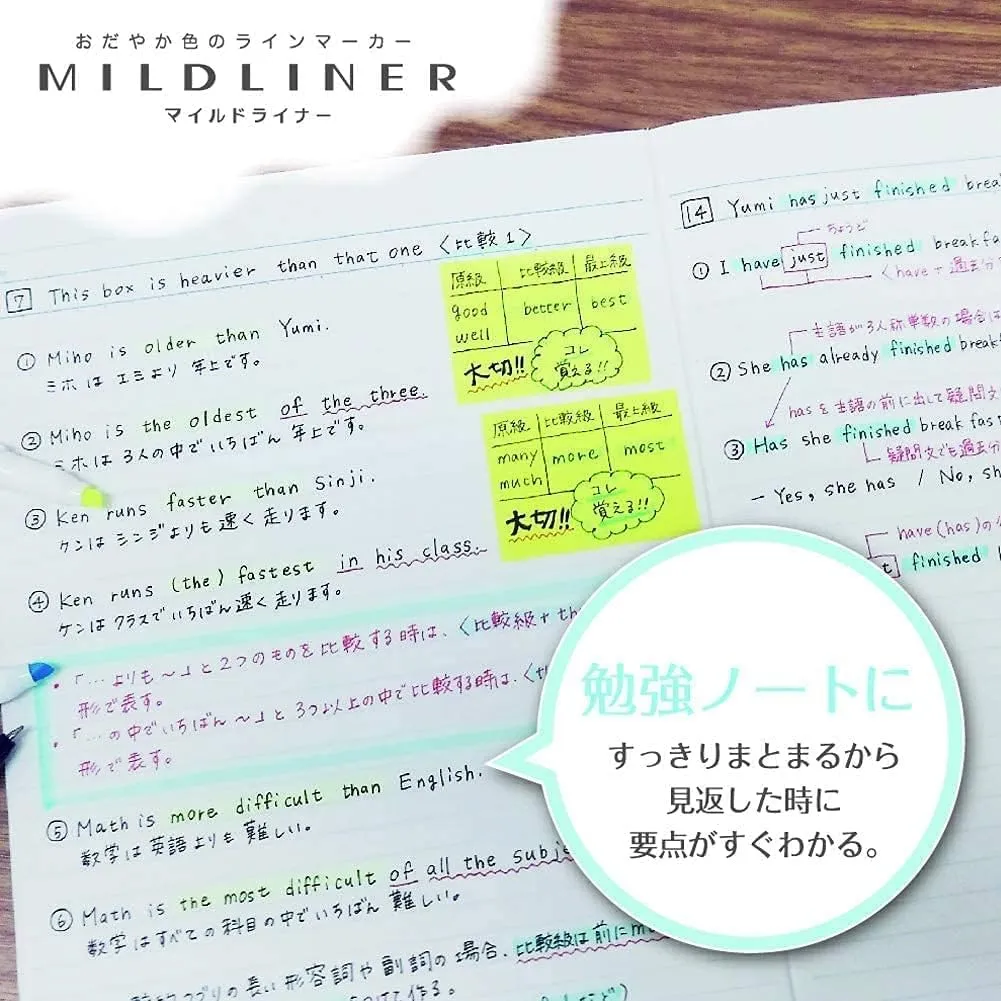 おだやか色のラインマーカー
MILDLINER
マイルドライナー
7 This box is heavier than that one 〈比較1〉
① Miho is older than Yumi.
ミホは エミより 年上です。
② Miho is the oldest of the three.
ミホは 3人の中でいちばん 年上です。
③ Ken runs faster than Sinji.
ケンは シンジよりも 速く 走ります。
④ Ken runs (the) fastest in his class.
ケンは クラスで いちばん 速く 走ります。
・「…よりも~」と 2つのものを 比較する時は、〈比較級+th
形で表す。
・「…の中でいちばん~」と 3つ以上の中で比較する時は、〈th
形で表す。
⑤ Math is more difficult than English.
数学は 英語よりも 難しい。
⑥ Math is the most difficult of all the subje
数学は すべての 科目の中で いちばん 難しい。
の長い形容詞や副詞の場合、比較級は前にm
つけて作る。
原級 比較級 最上級
good
well
better best
大切!!
コレ
覚える!!
原級 比較級 最上級
many
much
more most
大切!!
コレ
覚える!!
14 Yumi has just finished brea
ちょうど
① I have just finished breakfa
〈have+過去分
主語が3人称単数の場合は
② She has already finished break
hasを主語の前に出して疑問文
③ Has she finished breakfast
疑問文でも過去分
- Yes, she has / No, sh
have(has)の
t finished
勉強ノートに
すっきりまとまるから
見返した時に
要点がすぐわかる。